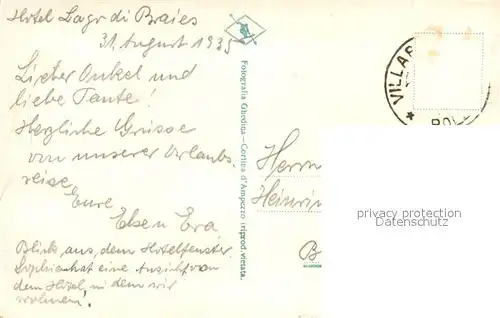 Hotel Lago di Braies
31. August 1935
Lieber Onkel und
liebe Tante!
Herzliche Grüsse
von unserer Urlaubs-
reise
Eure
Else u Eva
Blick aus dem Hotelfenster.
hat eine Ansicht von
dem Hotel, in dem wir
wohnen!
Fotografia Ghedina - Cortina d'Ampezzo riprod. vietata.
Herrn
Heinri
B
VILLA
BOL
privacy protection
Datenschutz